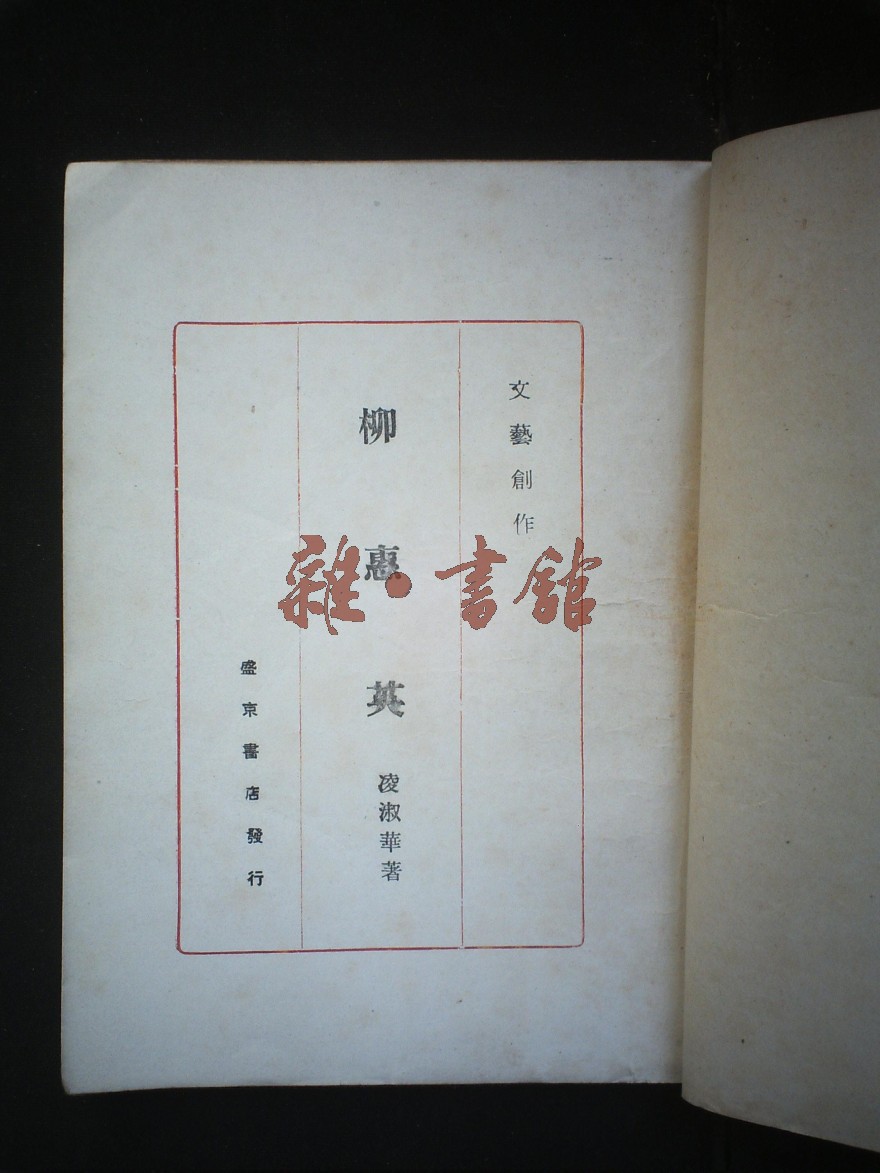 文藝創作
柳惠英
凌淑華著
盛京書店發行
雜·書館